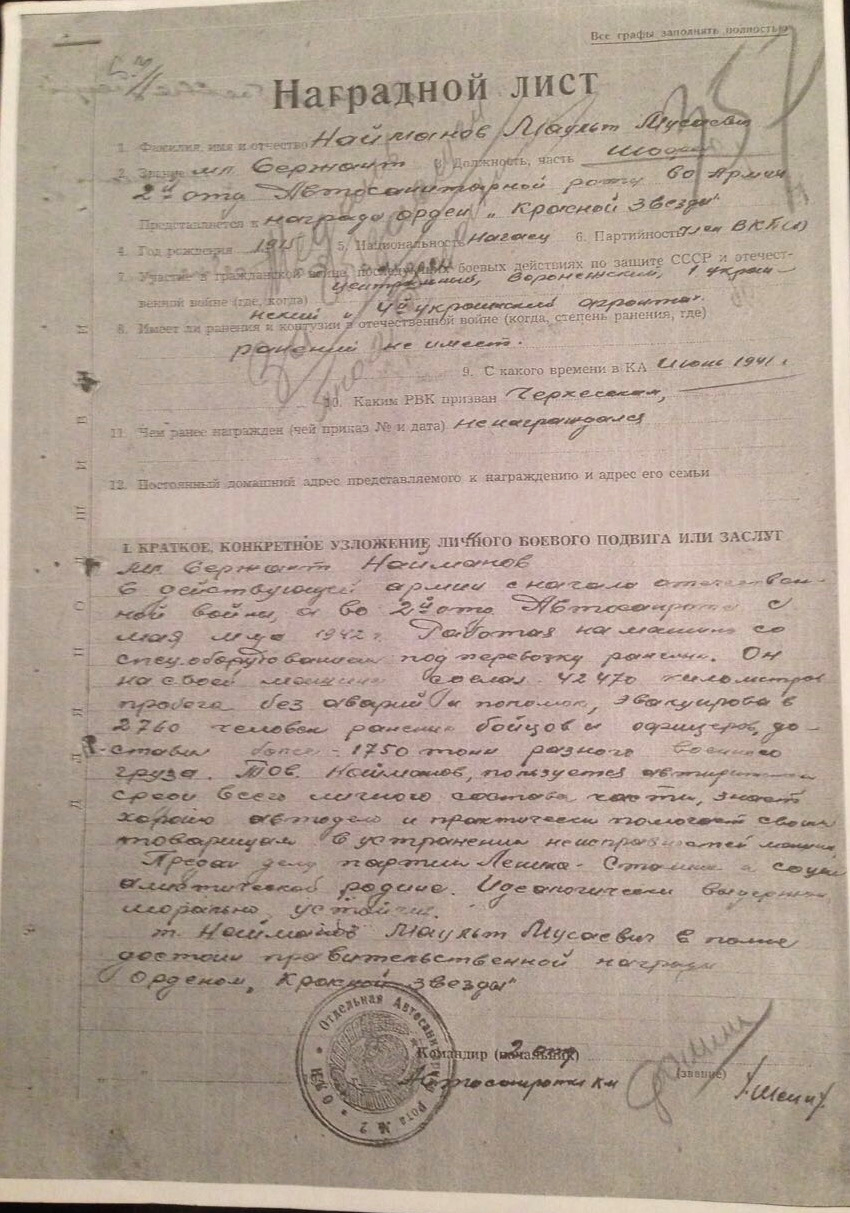 Все графы заполнять полностью
Наградной лист
1. Фамилия, имя и отчество Найманов Маульт Мусаевич
2. Звание мл. Сержант 3. Должность, часть Шофер
2й отд Автосанитарной роты 60 Армии
Представляется к награде орден „Красной Звезды"
4. Год рождения 1915 5. Национальность Нагаец 6. Партийность член ВКП(б)
7. Участие в гражданской войне, последующих боевых действиях по защите СССР и отечест-
Центральный, Воронежский, 1 украи-
венной войне (где, когда)
нский и 4й украинский фронта.
8. Имеет ли ранения и контузии в отечественной войне (когда, степень ранения, где)
ранений не имеет.
9. С какого времени в КА Июнь 1941 г
10. Каким РВК призван Черкесским,
11. Чем ранее награжден (чей приказ № и дата) не награждался
12. Постоянный домашний адрес представляемого к награждению и адрес его семьи
I. КРАТКОЕ, КОНКРЕТНОЕ УЗЛОЖЕНИЕ ЛИЧНОГО БОЕВОГО ПОДВИГА ИЛИ ЗАСЛУГ
мл. Сержант Найманов
в действующей армии с начала отечествен-
ной войны, а во 2й отд. Автосанроте с
мая м-ца 1942 г. Работая на машине со
спец.оборудованием под перевозку раненых. Он
на своей машине сделал 42470 километров
пробега без аварий и поломок, эвакуировав
2760 человек раненых бойцов и офицеров, до-
ставил более 1750 тонн разного военного
груза. Тов. Найманов, пользуется авторитетом
среди всего личного состава части, знает
хорошо автодело и практически помогает своим
товарищам в устранении неисправностей машин.
Предан делу партии Ленина-Сталина и социа
листической родине. Идеологически выдержан
морально устойчив.
т. Найманов Маульт Мусаевич вполне
достоин правительственной награды
Орденом „Красной Звезды"
Командир (начальник) 2 отд
Автосанроты
(звание)
Отдельная Автосанитарная Рота № 2